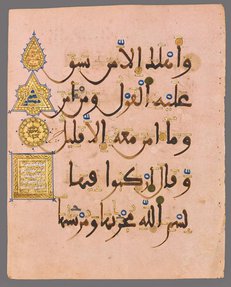 وأهلك إلا من سبق
عليه القول ومن ءامن
وما ءامن معه إلا قليل
وقال اركبوا فيها
بسم الله مجريها ومرسيها